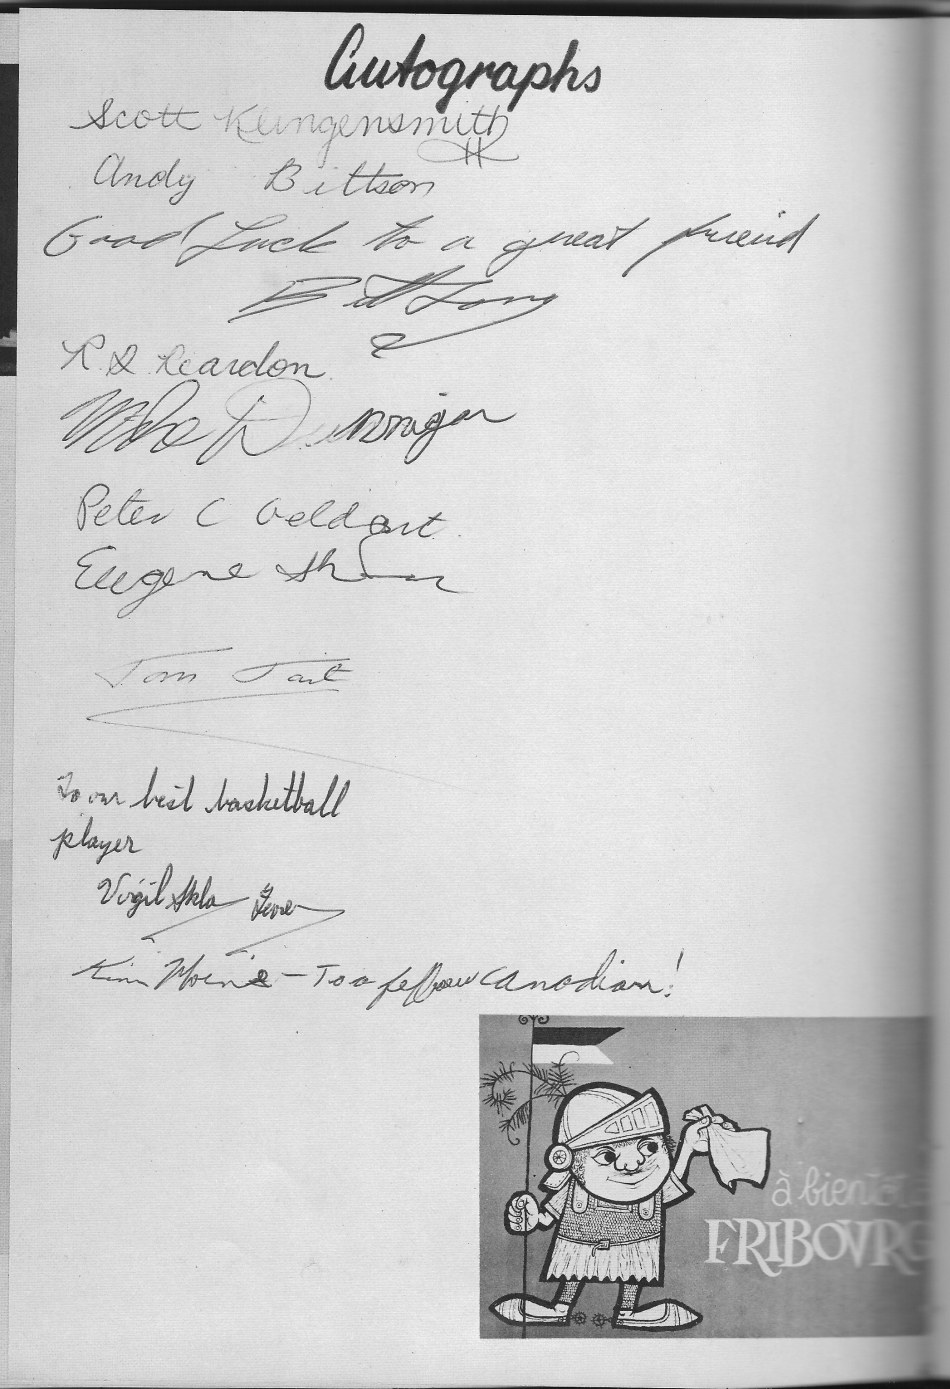 Autographs
Scott Klingensmith
Andy Bittson
Good Luck to a great friend
Bill Long
R. D. Reardon
Mike Dunnigan
Peter C Geldart
Eugene
Tom Tait
To our best basketball
player
Virgil
Kim Moine - To a fellow Canadian!
à bientôt
FRIBOURG